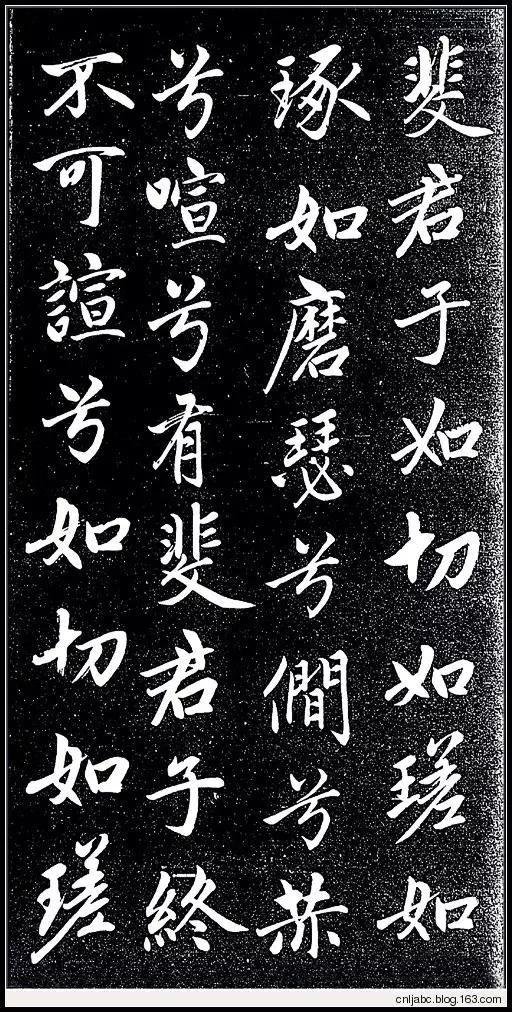 斐君子如切如瑳如
琢如磨瑟兮僩兮赫
兮喧兮有斐君子終
不可諠兮如切如瑳
cnljabc.blog.163.com